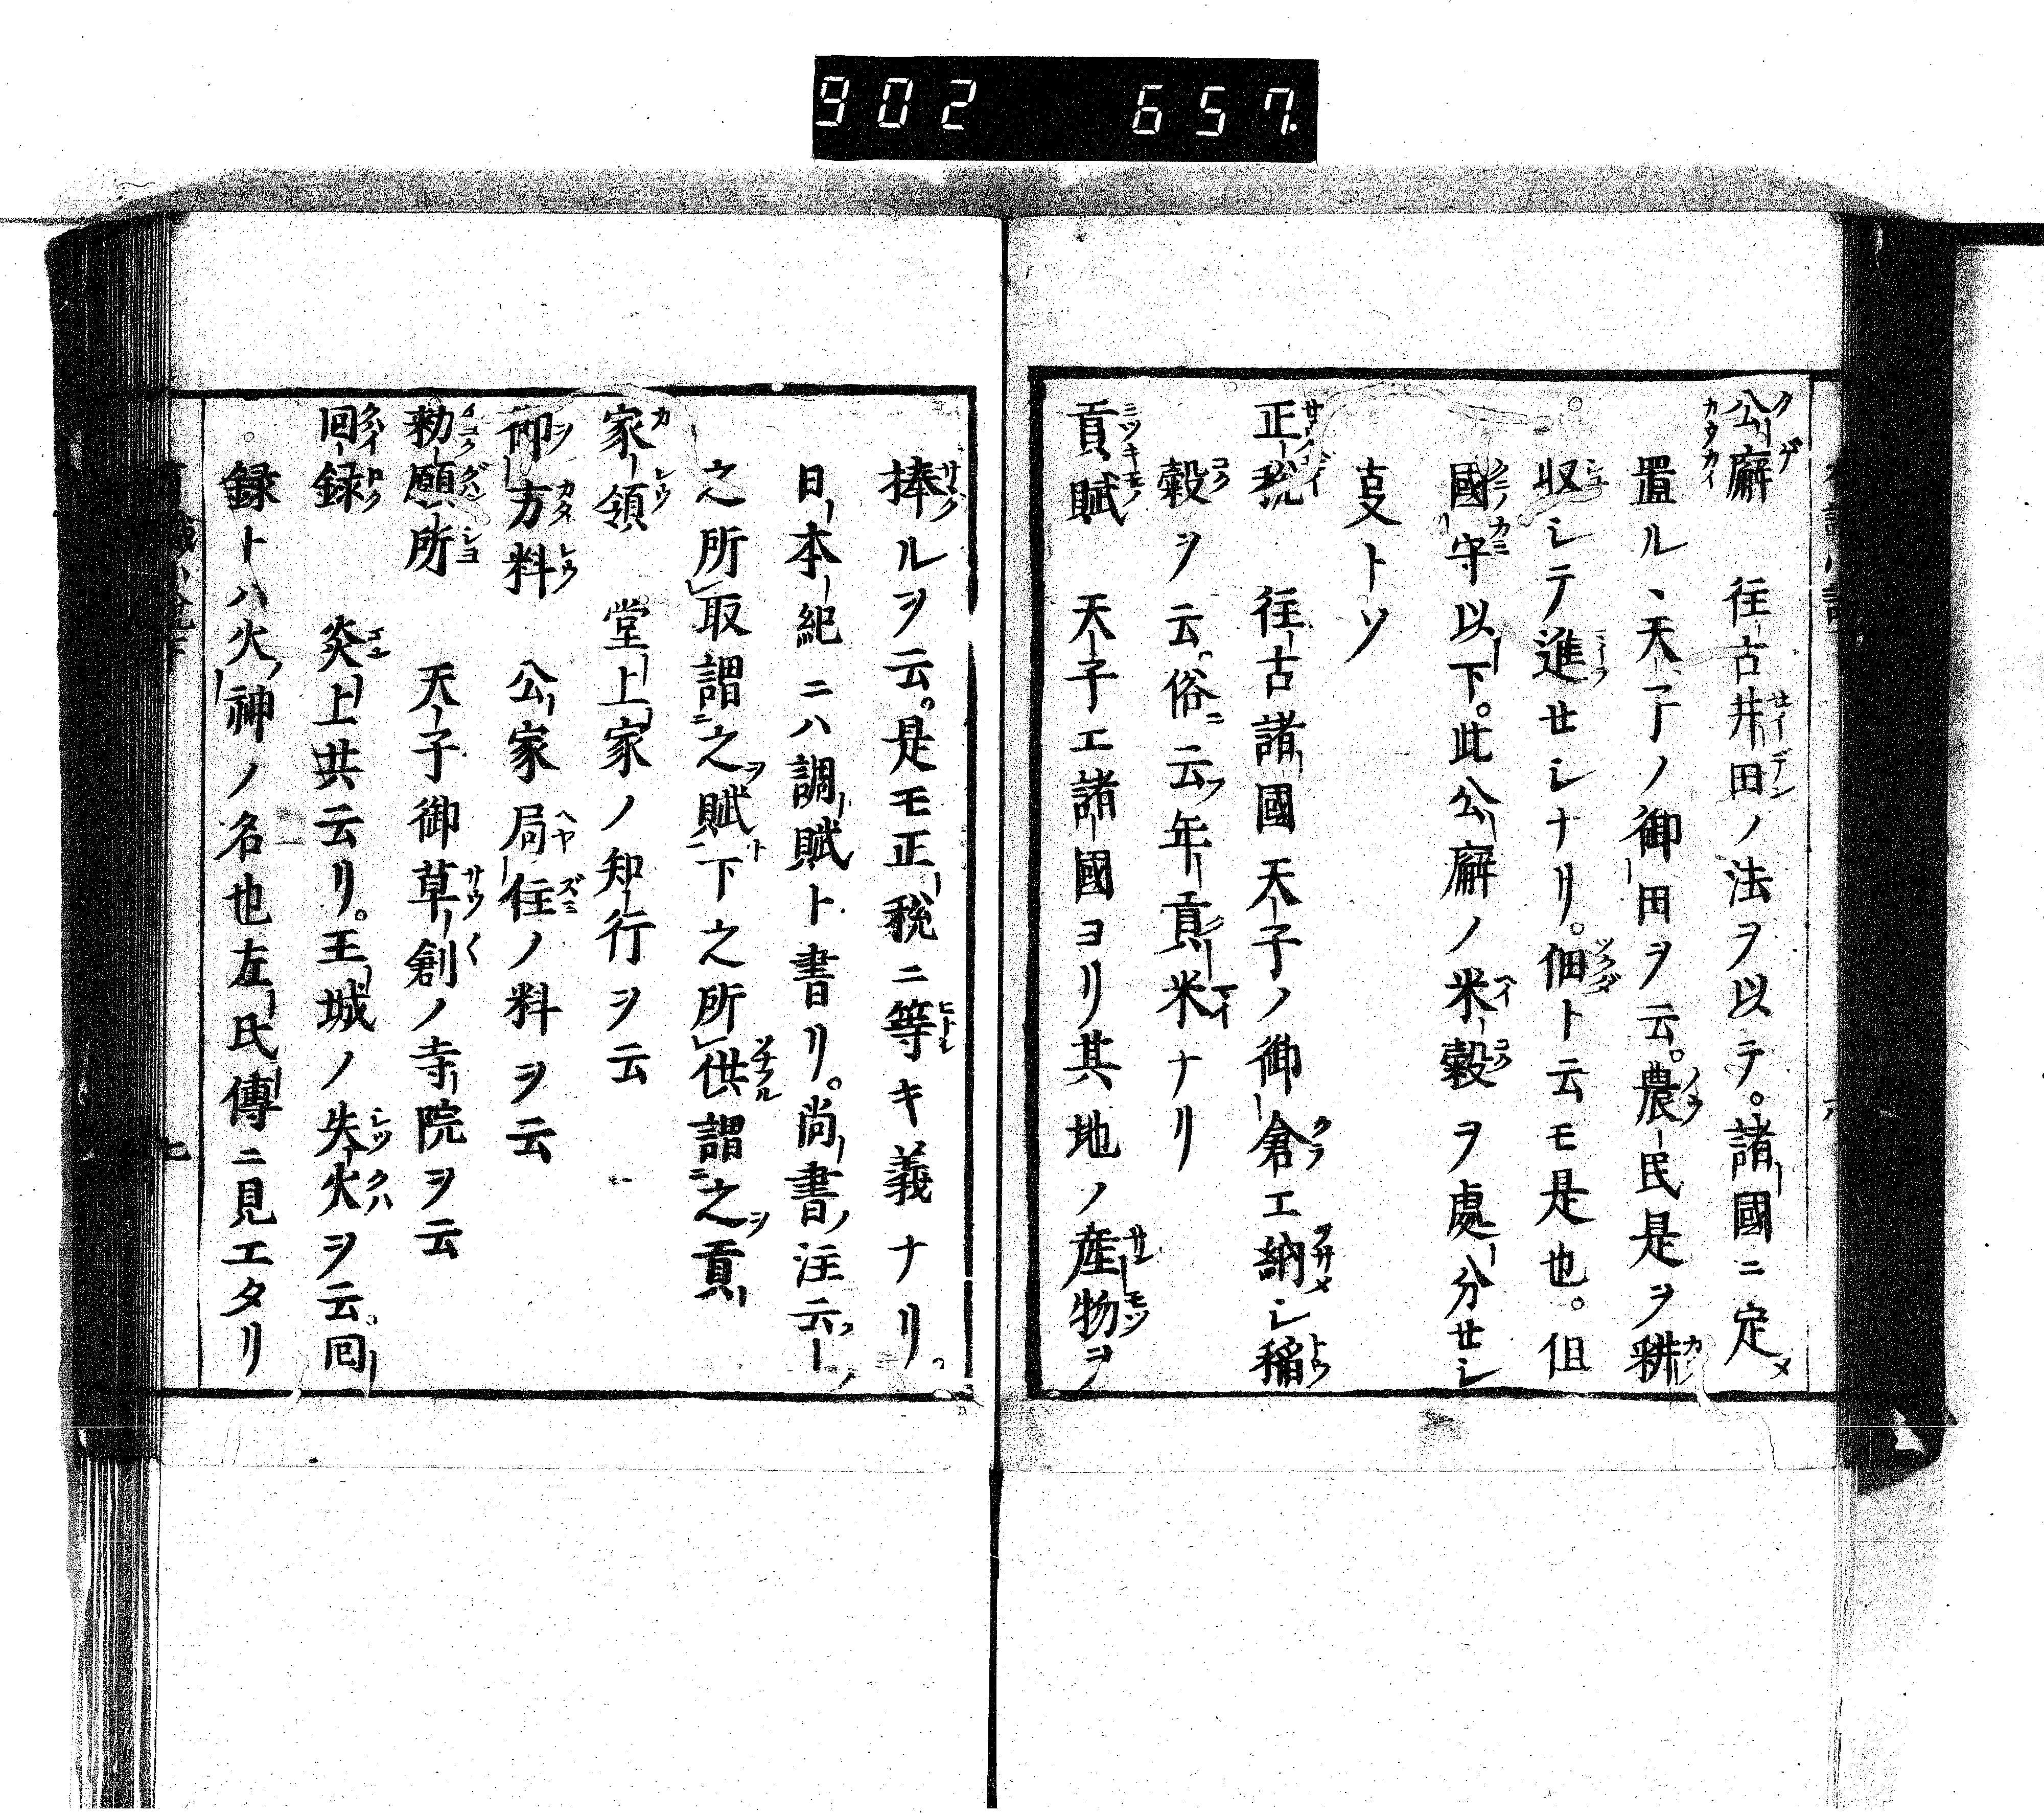 902 657
公廨 往古井田ノ法ヲ以テ。諸國ニ定メ
置ル、天子ノ御田ヲ云。農民是ヲ耕
収シテ進せシナリ。佃ト云モ是也。但
國守以下。此公廨ノ米穀ヲ處分せシ
叓トソ
正税 往古諸國天子ノ御倉エ納シ稲
穀ヲ云。俗ニ云フ年貢米ナリ
貢賦 天子エ諸國ヨリ其地ノ産物ヲ
捧ルヲ云。是モ正税ニ等キ義ナリ。
日本紀ニハ調賦ト書リ。尚書ノ注云フ
之所取謂ニ之ヲ賦ト下之所供謂ニ之ヲ貢
家領 堂上家ノ知行ヲ云
御方料 公家局住ノ料ヲ云
勅願所 天子御草創ノ寺院ヲ云
回録 炎上共云リ。王城ノ失火ヲ云。回
録トハ火神ノ名也左氏傳ニ見エタリ
七